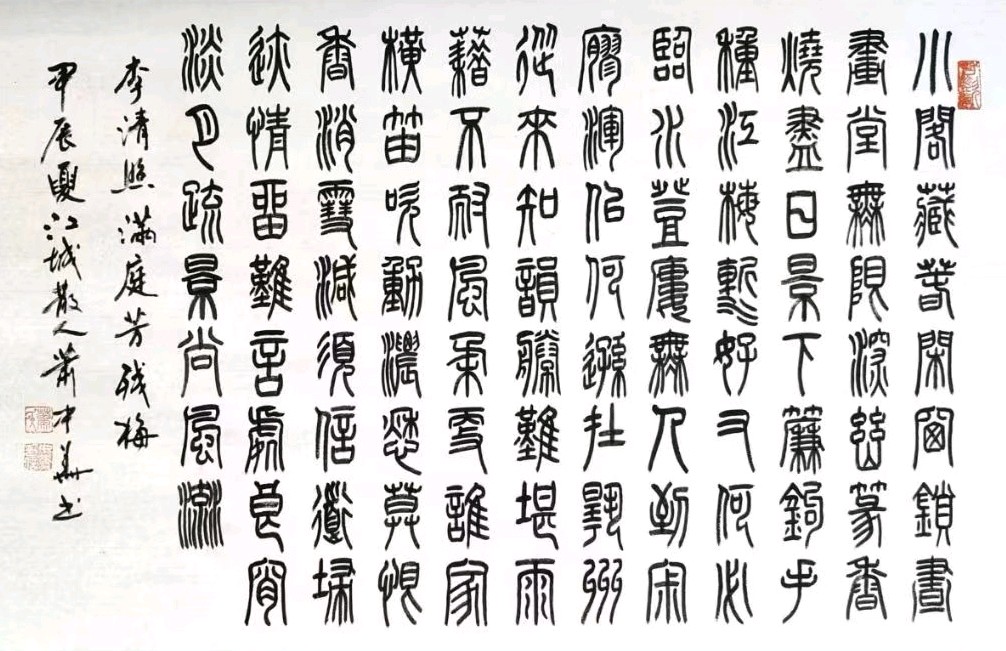 小閣藏春閑窗鎖晝
畫堂無限深幽篆香
燒盡日景下簾鉤手
種江梅漸好又何必
臨水登樓無人到寂
寥渾似何遜在揚州
從來知韻勝難堪雨
藉不耐風柔更誰家
橫笛吹動濃愁莫恨
香消雪減須信道掃
迹情留難言處良宵
淡月疏景尚風流
李清照滿庭芳残梅
甲辰夏江城散人蕭中華书